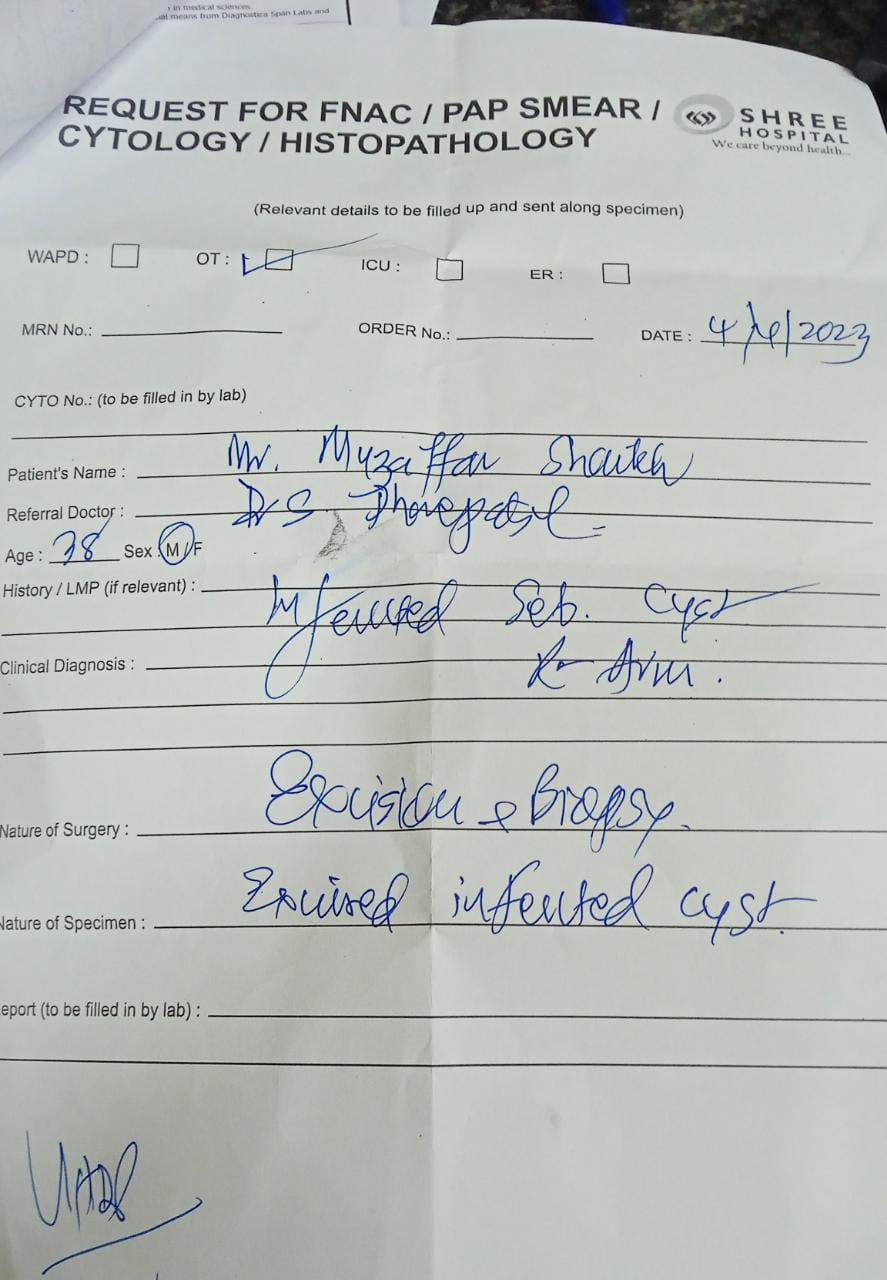 in medical sciences.
al means from Diagnostica Span Labs and
REQUEST FOR FNAC / PAP SMEAR /
CYTOLOGY / HISTOPATHOLOGY
SHREE
HOSPITAL
We care beyond health...
(Relevant details to be filled up and sent along specimen)
WAPD : OT : ICU : ER :
MRN No.: ORDER No.: DATE : 4/ /2023
CYTO No.: (to be filled in by lab)
Patient's Name : Mr. Muzaffar Shaikh
Referral Doctor : Dr S Dhorepatil
Age : 38 Sex : M / F
History / LMP (if relevant) : Infected Seb. Cyst
Clinical Diagnosis : R Arm.
Nature of Surgery : Excision & Biopsy.
Nature of Specimen : Excised infected cyst.
eport (to be filled in by lab) :